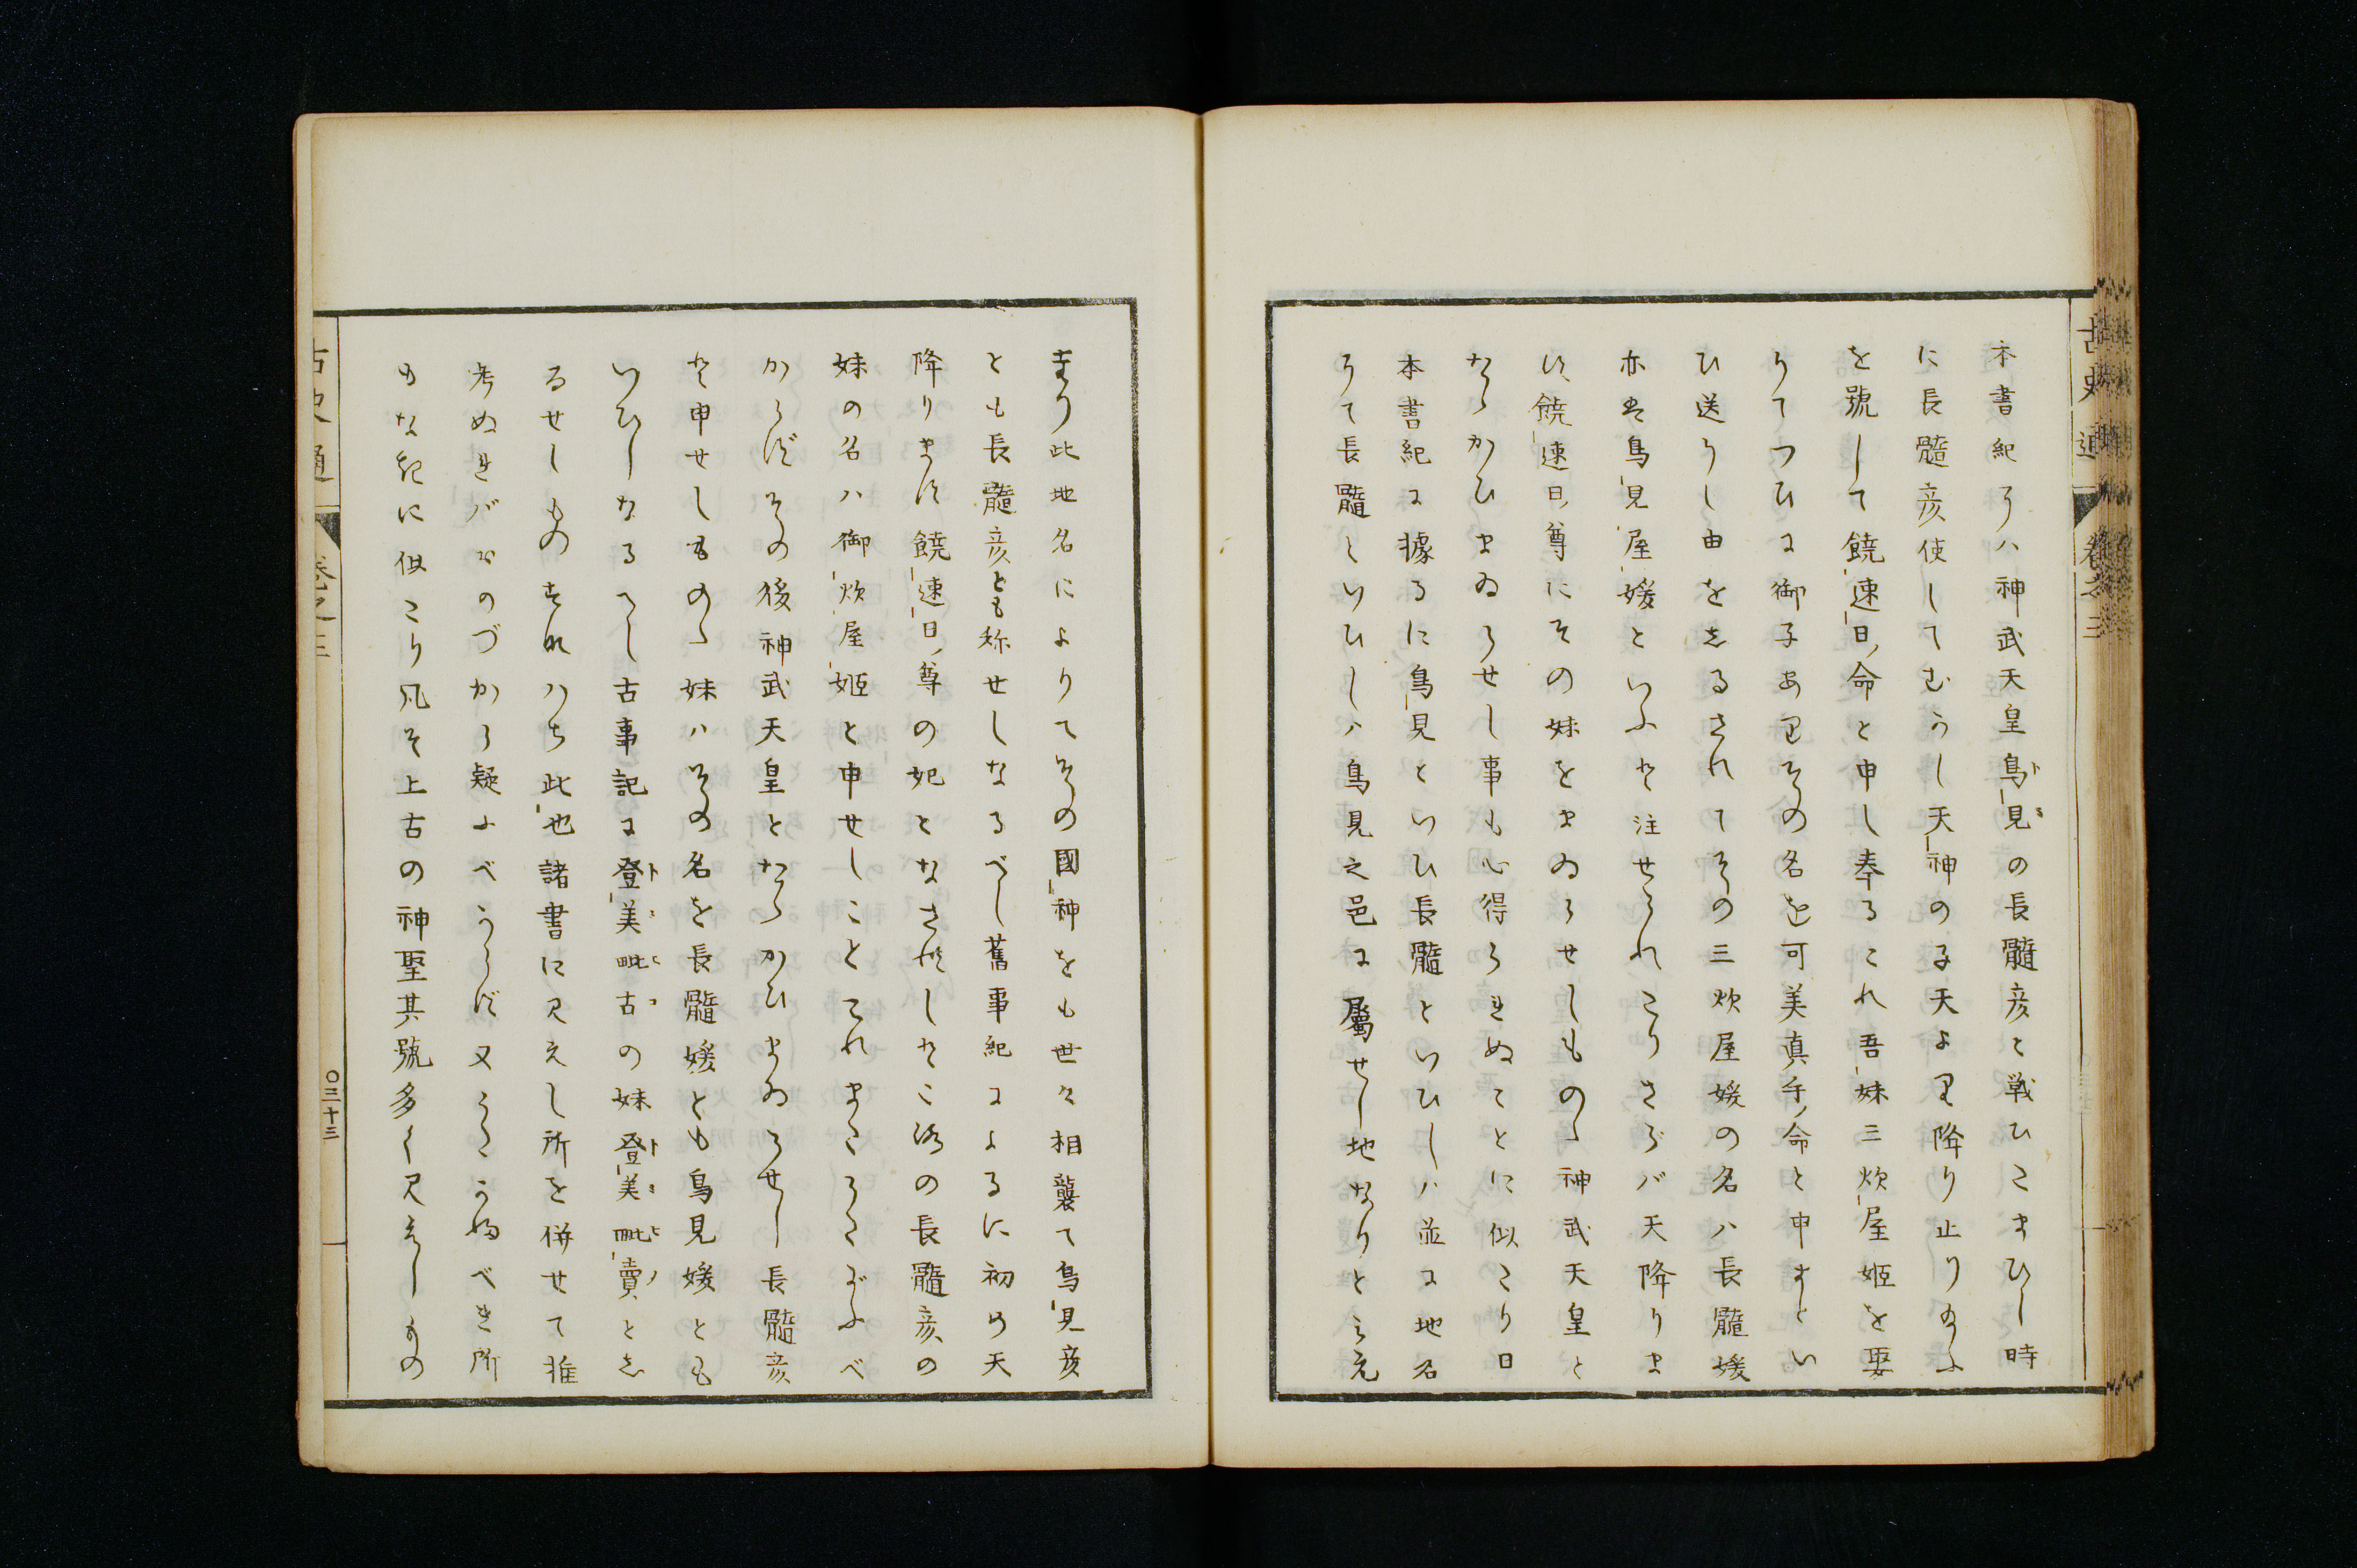 本書紀には神武天皇鳥見の長髓彦と戦ひこまひし時
に長髓彦使してむうし天神の子天より降り止り給ふ
を號して饒速日命と申し奉るこれ吾妹三炊屋姫を娶
りてつひに御子ありその名を可美真手命と申すとい
ひ送りし由をしるされてその三炊屋媛の名ハ長髓媛
亦は鳥見屋媛といふと注せられたりさらバ天降りま
す饒速日尊にその妹をまゐらせしものゝ神武天皇と
たゝかひまゐらせし事も心得られぬことに似たり日
本書紀に據るに鳥見といひ長髓といひしハ並に地名
にて長髓といひしハ鳥見之邑に屬せし地なりと見え
たり此地名によりてその國神をも世々相襲て鳥見彦
とも長髓彦とも稱せしなるべし舊事紀によるに初め天
降ります饒速日尊の妃となされしところの長髓彦の
妹の名ハ御炊屋姫と申せしことこれまたうたがふべ
からずその後神武天皇とたゝかひまゐらせし長髓彦
と申せしものゝ妹ハその名を長髓媛とも鳥見媛とも
いひしなるべし古事記に登美毗古の妹登美毗賣としるせしものすなハち此也諸書に見えし所を併せて推
考ぬればおのづから疑ふべからず又うたがふべき所
もなきに似たり凡そ上古の神聖其號多く見えしもの
古史通
卷之三
〇三十三